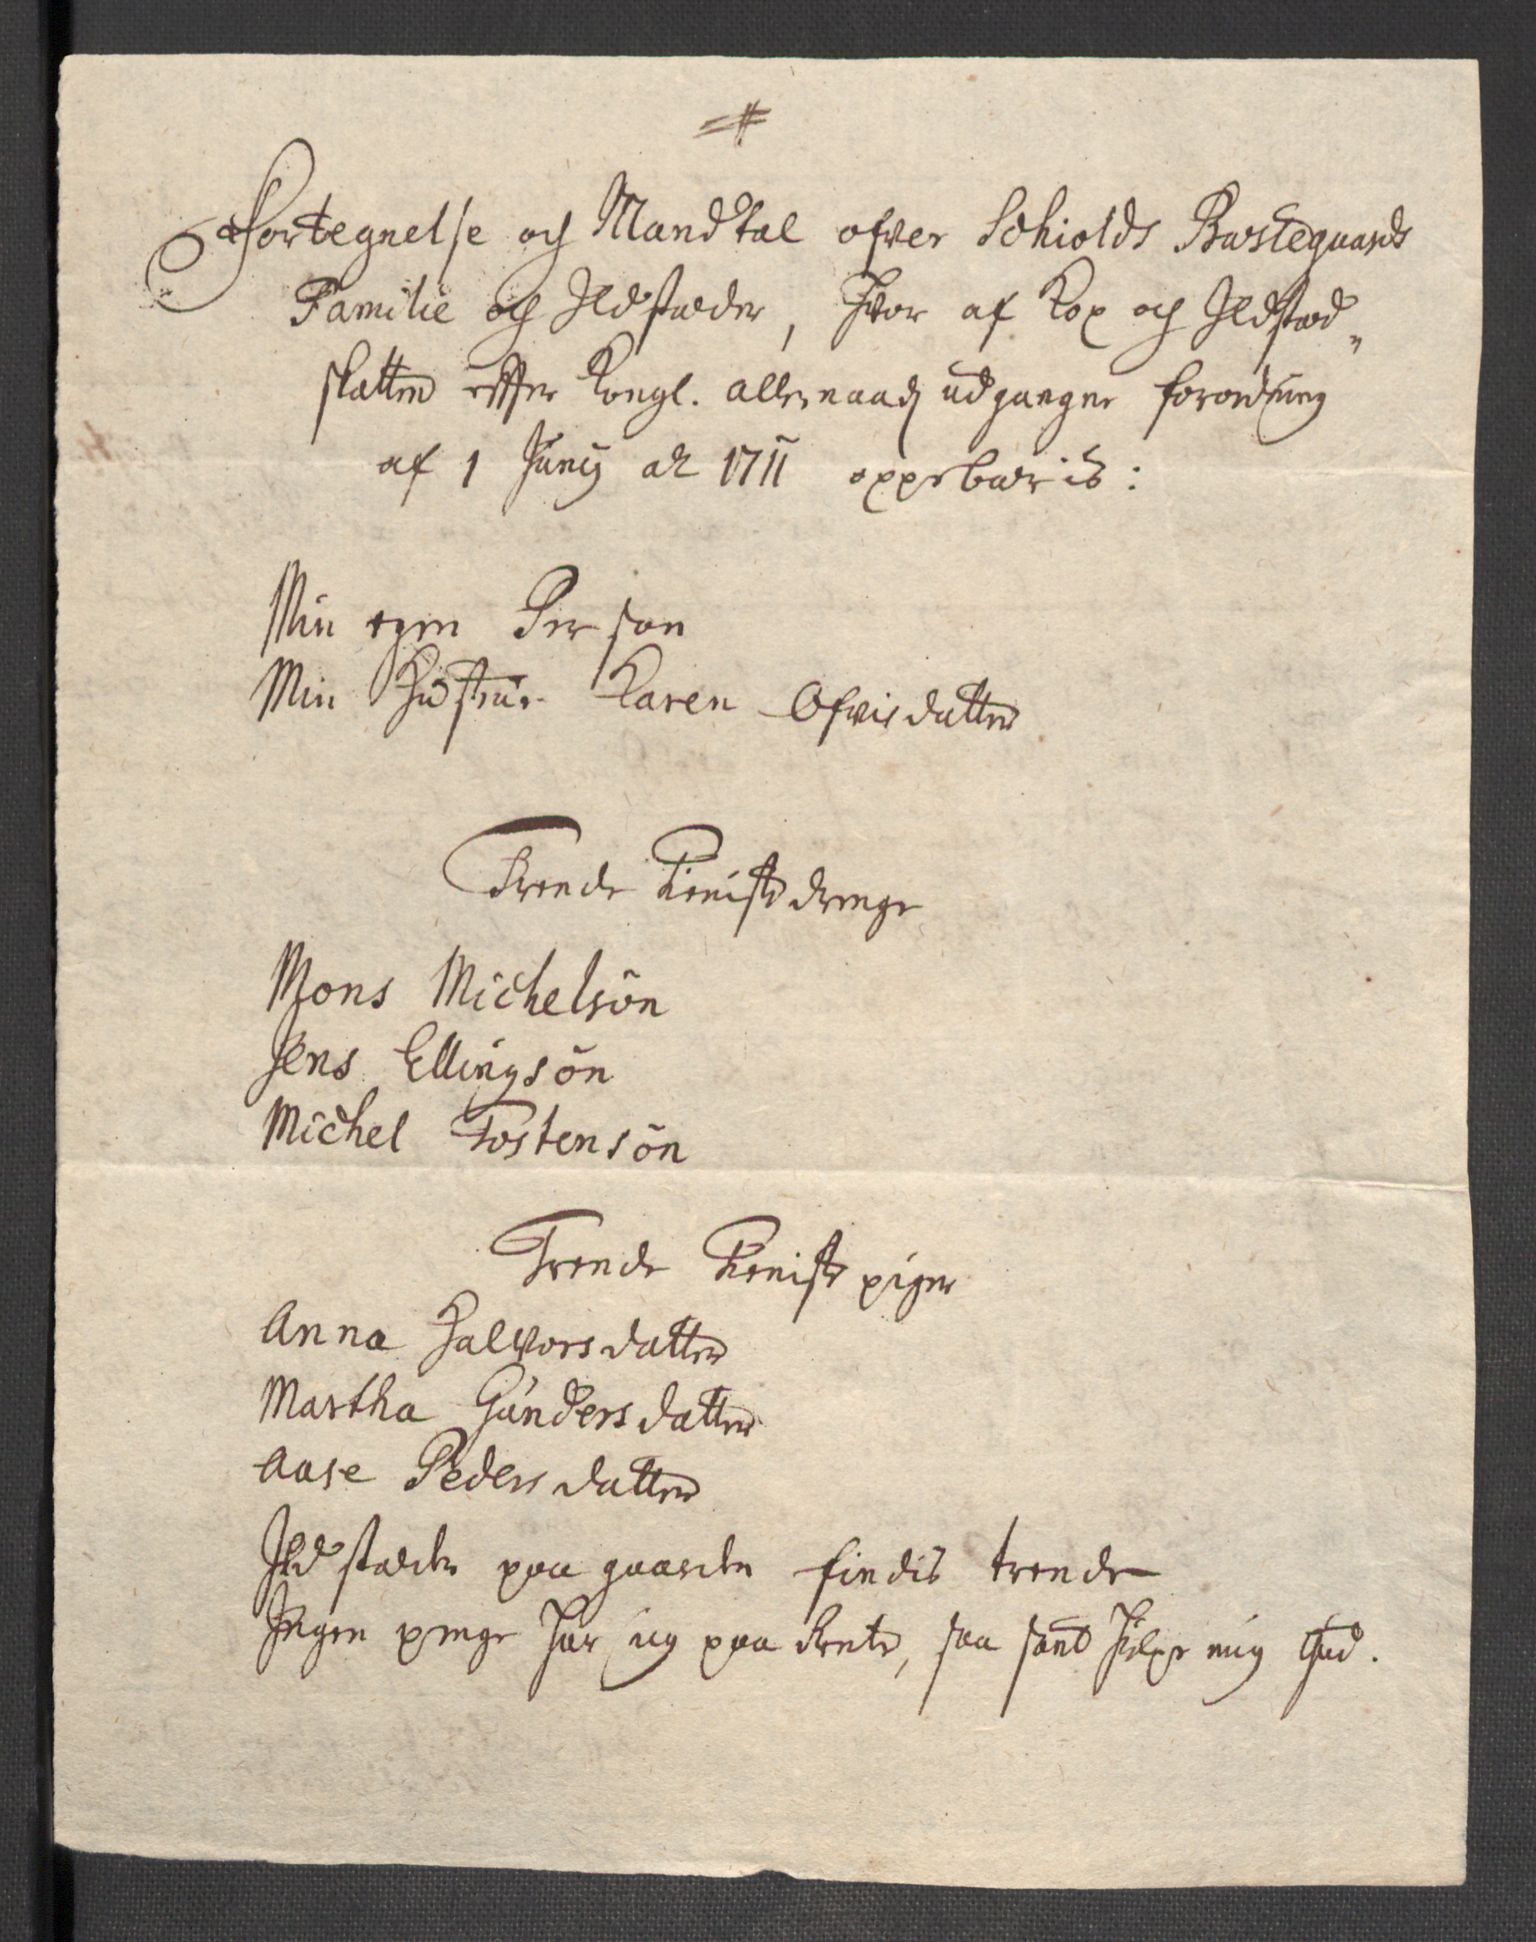 Fortegnelse og Mandtal ofver Schiolds Præstegaards
Familie og Ildstæder, Hvor af Kop og Ildstæd„
skatten effter Kongl. allernaad udgangne forordning
af 1 Junij ao 1711 oppebæris:
Min egen Person
Min Hustrue Karen Ofvisdatter
Trende Tienist drenge
Mons Michelsön
Jens Ellingsön
Michel Tostensön
Trende Tieniste piger
Anna Halvorsdatter
Martha Gundersdatter
Aase Pedersdatter
Ildstæder paa gaarden findis trende
Ingen penge har ieg paa Rente, saa sant hielpe mig Gud.